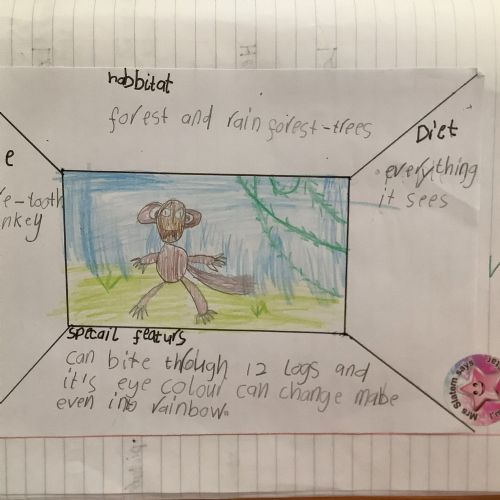 habbitat
forest and rain forest-trees
Diet
everything
it sees
e
e-tooth
nkey
specail featurs
can bite through 12 Logs and
it's eye colour can change mabe
even into rainbow.
Mrs Slatem says